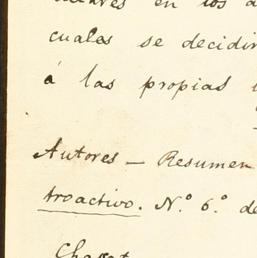 en los
cuales se decidir
á las propias
Autores — Resumen
troactivo. N.º 6.º de